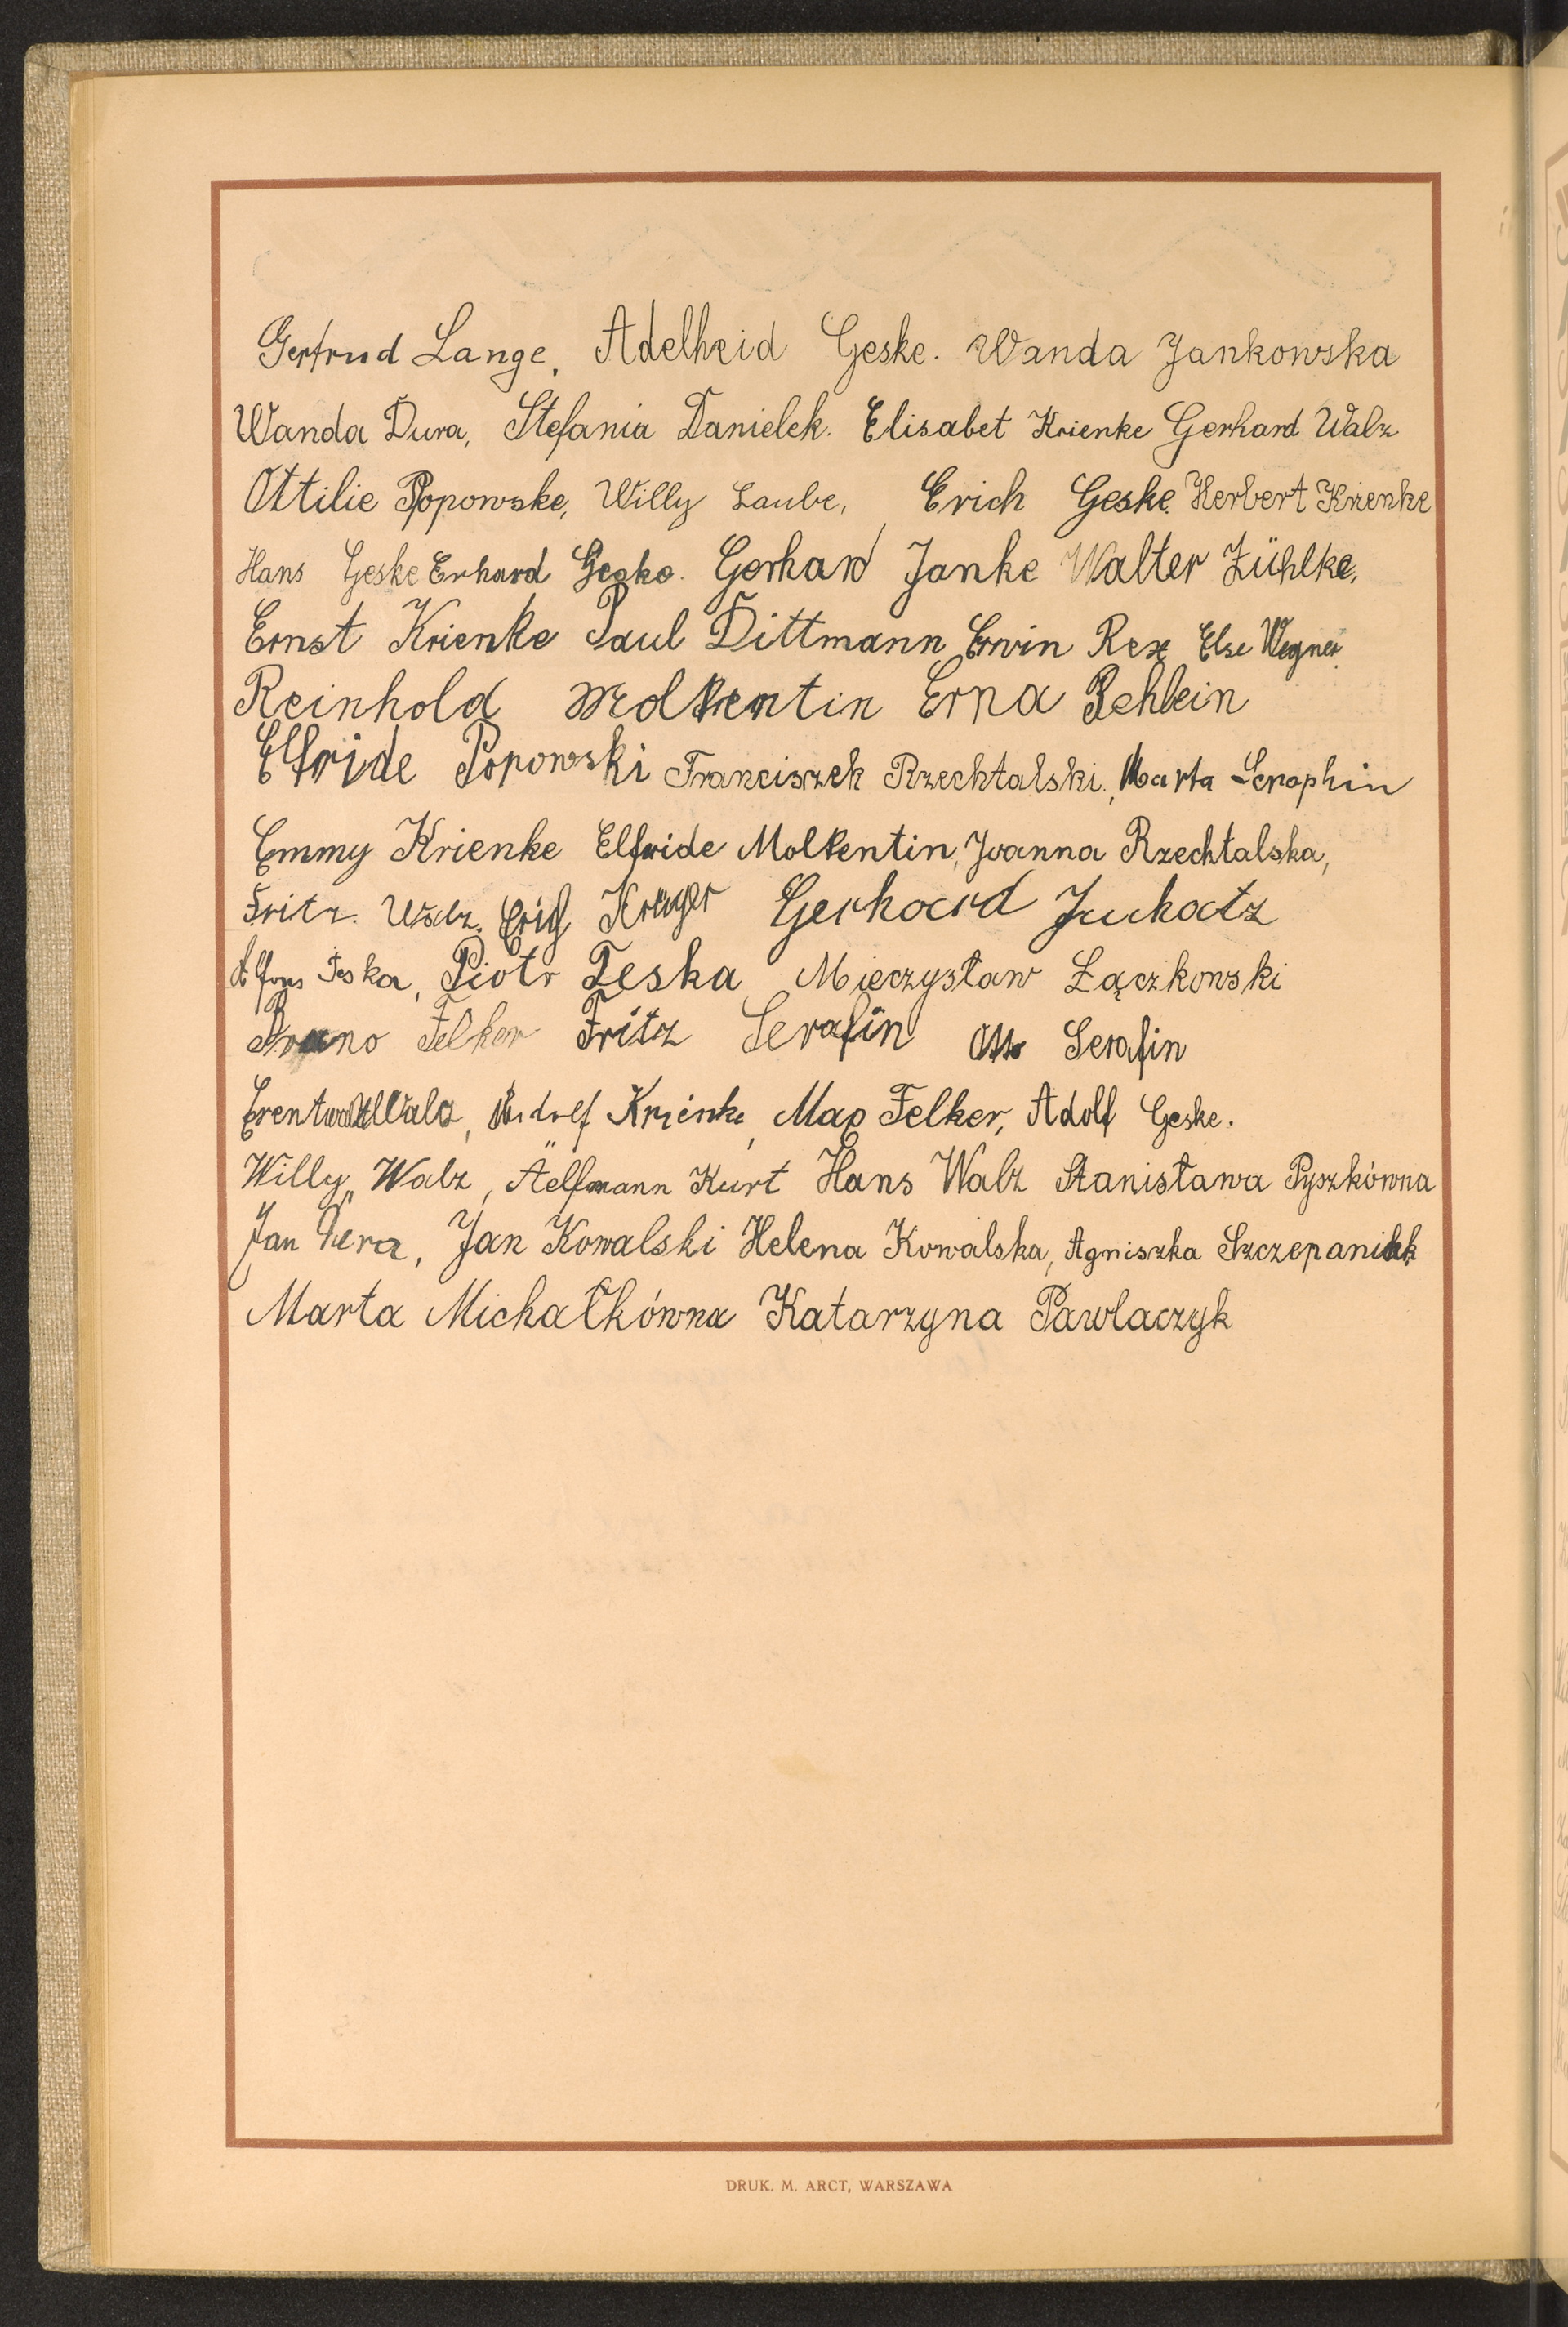 Gertrud Lange, Adelheid Geske. Wanda Jankowska
Wanda Dura, Stefania Danielek. Elisabet Krienke Gerhard Walz
Ottilie Popowske, Willy Laube, Erich Geske. Herbert Krienke
Hans Geske Erhard Geske. Gerhard Janke Walter Zühlke,
Ernst Krienke Paul Dittmann Erwin Rex Else Wegner.
Reinhold Molkentin Erna Rehbein
Elfride Popowski Franciszek Rzechtalski, Marta Seraphin
Emmy Krienke Elfride Molkentin, Joanna Rzechtalska,
Fritz. Walz. Erich Krüger Gerhard Juhatz
Alfons Teska, Piotr Teska Mieczysław Łączkowski
Bruno Felker Fritz Serafin Otto Serafin
Walz, Rudolf Krienke, Max Felker, Adolf Geske.
Willy Walz, Kurt Hans Walz Stanisława Pyszkówna
Jan Dura, Jan Kowalski Helena Kowalska, Agniszka Szczepaniak
Marta Michałkówna Katarzyna Pawlaczyk
DRUK. M. ARCT, WARSZAWA